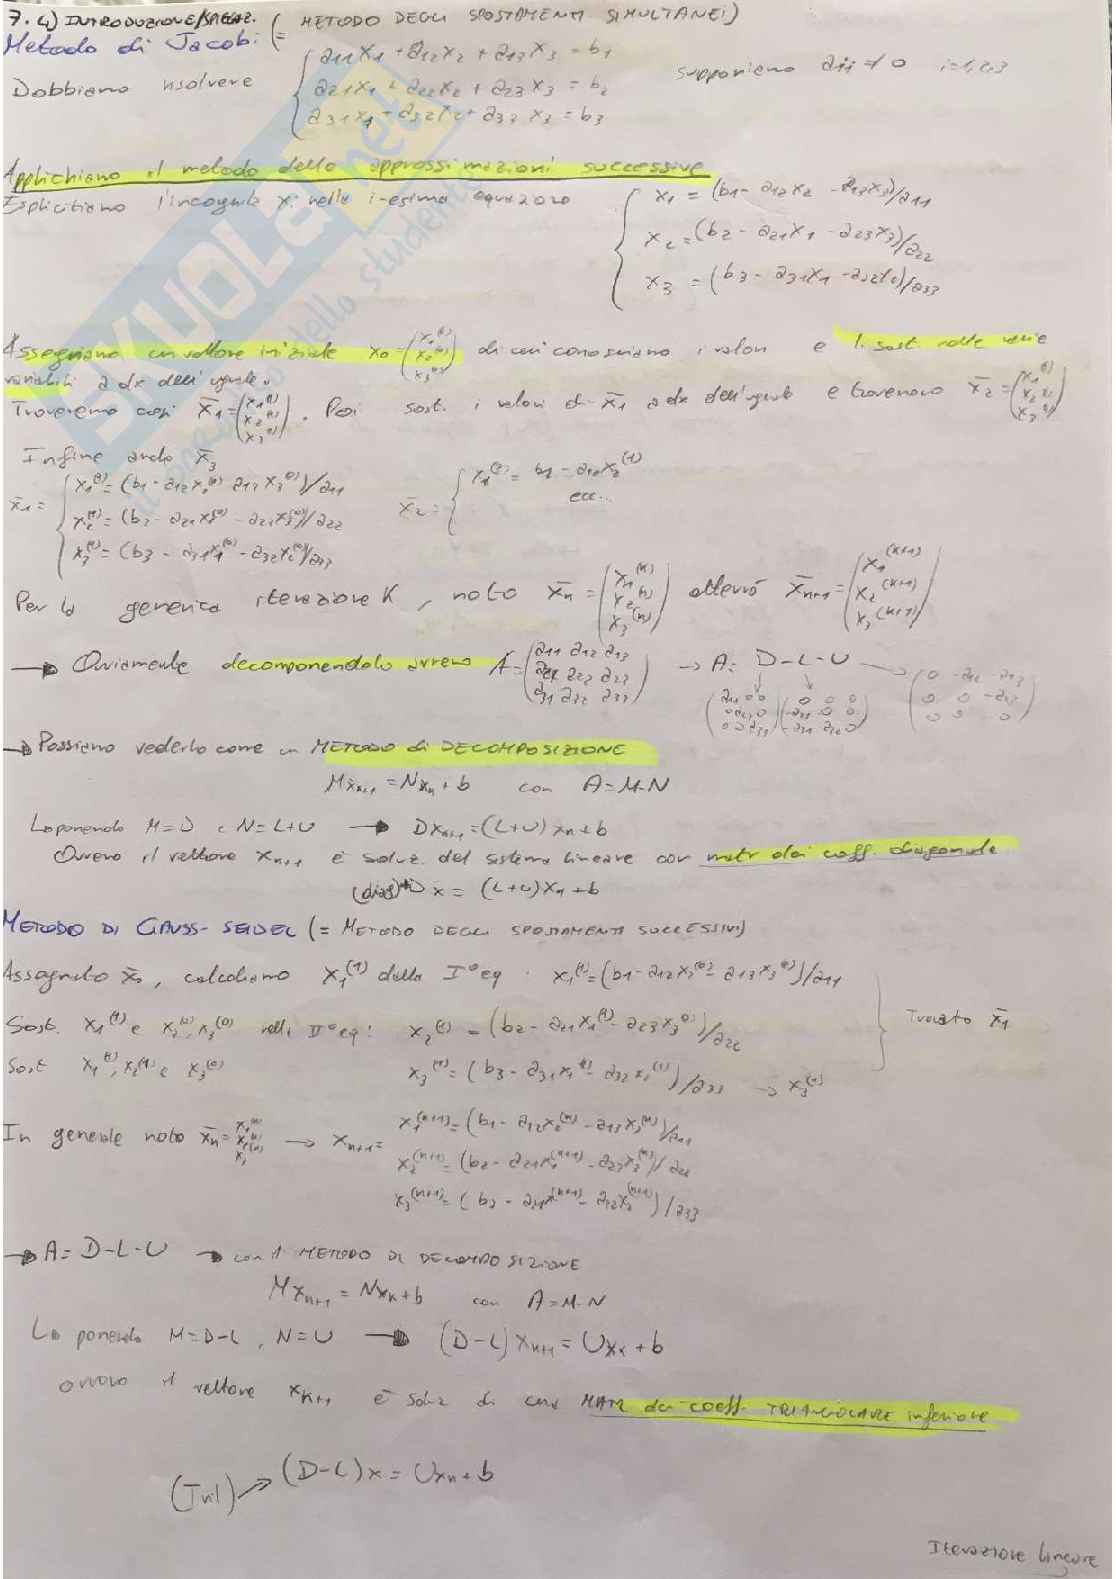 7.4) INTRODUZIONE/SPIEGAZ. (= METODO DEGLI SPOSTAMENTI SIMULTANEI)
Metodo di Jacobi:
Dobbiamo risolvere { a11x1 + a12x2 + a13x3 = b1 supponiamo aii ≠ 0 i=1,2,3
a21x1 + a22x2 + a23x3 = b2
a31x1 + a32x2 + a33x3 = b3
Applichiamo il metodo delle approssimazioni successive
Esplicitiamo l'incognita xi nella i-esima equazione { x1 = (b1 - a12x2 - a13x3)/a11
x2 = (b2 - a21x1 - a23x3)/a22
x3 = (b3 - a31x1 - a32x2)/a33
Assegniamo un vettore iniziale x0 = (x1(0) x2(0) x3(0)) di cui conosciamo i valori e li sost. nelle varie
variabili a dx dell'uguale.
Troveremo così x̄1 = (x1(1) x2(1) x3(1)). Poi sost. i valori di x̄1 a dx dell'uguale e troveremo x̄2 = (x1(2) x2(2) x3(2))
Infine avrò x̄3
x̄1 = { x1(1) = (b1 - a12x2(0) - a13x3(0))/a11 x̄2 = { x1(2) = b1 - a12x2(1)
ecc...
x2(1) = (b2 - a21x1(0) - a23x3(0))/a22
x3(1) = (b3 - a31x1(0) - a32x2(0))/a33
Per la generica iterazione K, noto x̄k = (x1(k) x2(k) x3(k)) otterrò x̄k+1 = (x1(k+1) x2(k+1) x3(k+1))
→ Ovviamente decomponendola avremo A = (a11 a12 a13 a21 a22 a23 a31 a32 a33) → A = D-L-U
(a11 0 0 0 a22 0 0 0 a33) (0 0 0 -a21 0 0 -a31 -a32 0) (0 -a12 -a13 0 0 -a23 0 0 0)
→ Possiamo vederlo come un METODO di DECOMPOSIZIONE
Mxk+1 = Nxk + b con A = M-N
Lo ponendo M=D e N=L+U → Dxk+1 = (L+U)xk + b
Ovvero il vettore xk+1 è soluz. del sistema lineare con matr dei coeff. diagonale
(diag) D x = (L+U)xk + b
METODO DI GAUSS-SEIDEL (= METODO DEGLI SPOSTAMENTI SUCCESSIVI)
Assegnato x̄0, calcoliamo x1(1) dalla I° eq : x1(1) = (b1 - a12x2(0) - a13x3(0))/a11
Sost. x1(1) e x2(0), x3(0) nella II° eq: x2(1) = (b2 - a21x1(1) - a23x3(0))/a22 Trovato x̄1
Sost x1(1), x2(1) e x3(0) x3(1) = (b3 - a31x1(1) - a32x2(1))/a33 → x3(1)
In generale noto x̄k = x1(k) x2(k) x3(k) → xk+1 = x1(k+1) = (b1 - a12x2(k) - a13x3(k))/a11
x2(k+1) = (b2 - a21x1(k+1) - a23x3(k))/a22
x3(k+1) = (b3 - a31x1(k+1) - a32x2(k+1))/a33
→ A = D-L-U → con il METODO DI DECOMPOSIZIONE
Mxk+1 = Nxk + b con A = M-N
Lo ponendo M=D-L, N=U → (D-L)xk+1 = Uxk + b
ovvero il vettore xk+1 è soluz di MATR dei coeff. TRIANGOLARE inferiore
(Tril) → (D-L)x = Uxk + b
Iterazione lineare
SKUOLA.net